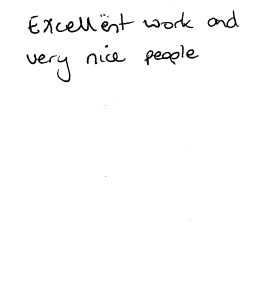 Excellent work and
very nice people